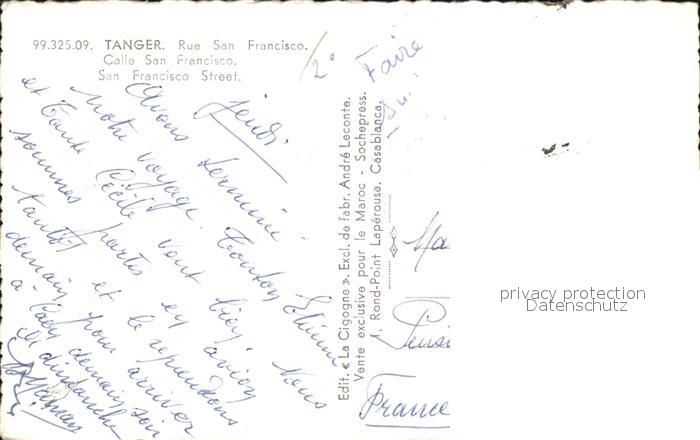 99.325.09. TANGER. Rue San Francisco.
Calle San Francisco.
San Francisco Street.
2e
Jeudi
Avons terminé
notre voyage. Tonton Etienne
et Tante Cécile vont bien. Nous
sommes partis en avion
tantôt et le reprendrons
demain pour arriver
à demain soir
dimanche
Maman
Edit. « La Cigogne ». Excl. de fabr. André Leconte.
Vente exclusive pour le Maroc - Sochepress.
1, Rond-Point Lapérouse. Casablanca.
Faire
Ma
Pensi
France
privacy protection
Datenschutz